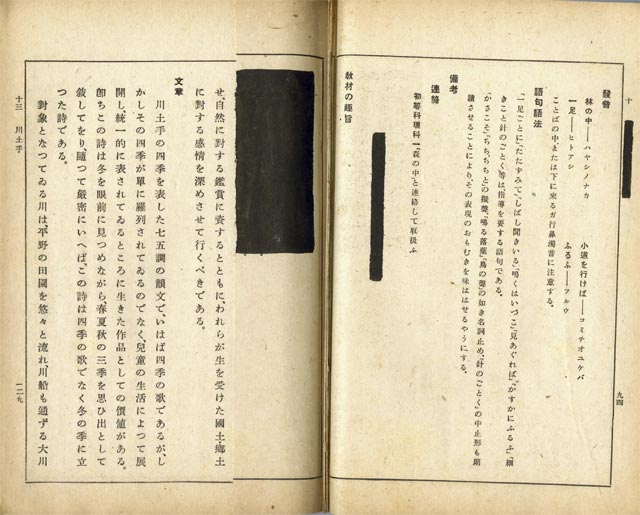 十
九四
發音
林の中――ハヤシノナカ
小道を行けば――コミチオユケバ
一足――ヒトアシ
ふるふ――フルウ
ことばの中または下に來るガ行鼻濁音に注意する。
語句語法
「一足ごとに」「たたずみて」「しばし聞きゐる」「鳴くはいづこ」「見あぐれば」「かすかにふるふ」「細
きこと針のごとく」等は指導を要する語句である。
「かさこそ」「ちちちち」との擬聲、「鳴る落葉」「鳥の聲」の如き名詞止め、「針のごとく」の中止形も朗
讀させることにより、その表現のおもむきを味ははせるやうにする。
備考
連絡
初等科理科一「森の中」と連絡して取扱ふ
教材の趣旨
せ、自然に對する鑑賞に資するとともに、われらが生を受けた國土・鄕土
に對する感情を深めさせて行くべきである。
文章
川土手の四季を表した七五調の韻文で、いはば四季の歌であるが、し
かしその四季が單に羅列されてゐるのでなく、兒童の生活によつて展
開し、統一的に表されてゐるところに生きた作品としての價値がある。
卽ちこの詩は冬を眼前に見つめながら、春夏秋の三季を思ひ出として
敍してをり、隨つて嚴密にいへば、この詩は四季の歌でなく冬の季に立
つた詩である。
對象となつてゐる川は、平野の田園を悠々と流れ、川船も通ずる大川
十三 川土手
一二九